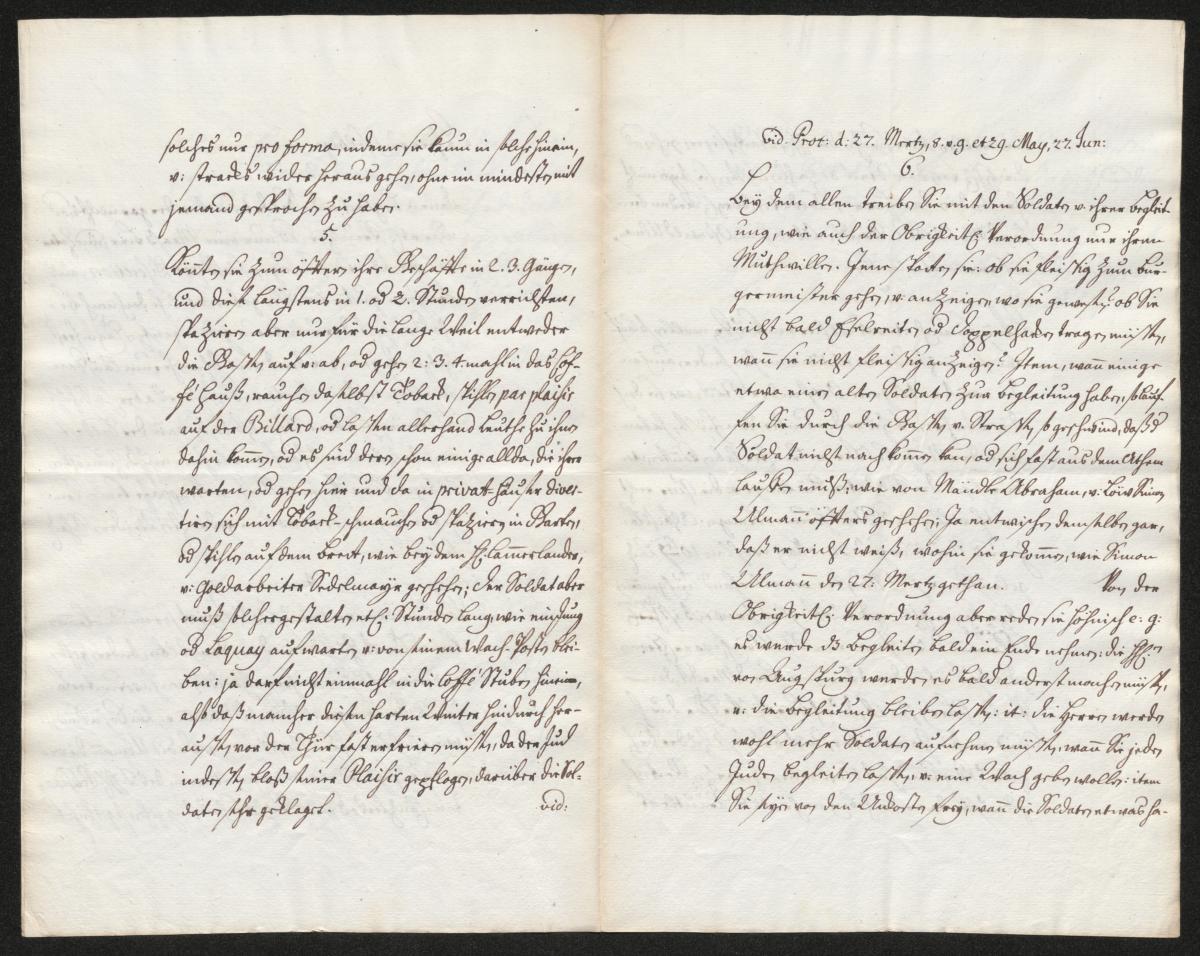 solches nur pro forma, indeme sie kaum in solche hinein,
v: stracks wider heraus gehen, ohne im mindesten mit
jemand gesprochen zu haben.
5.
Könnten sie zum öfftern ihre Geschäffte in 2. 3. Gängen,
und diese längstens in 1. od 2. Stunden verrichten,
spazieren aber nur für die lange Weil entweder
die Gassen auf v: ab, od gehen 2: 3. 4. mahl in das Cof-
fé Hauß, rauchen daselbst Toback, spihlen par plaisir
auf der Billard, od lassen allerhand Leuthe zu ihnen
dahin kommen, od es sind deren schon einige allda, die ihrer
warten, od gehen hier und da in privat Häuser diver-
tiren sich mit Toback-schmauchen od spatziren in Garten,
od spihlen auf dem Brett, wie bey dem H: Lammerlander,
v: Goldarbeiter Sedelmayr geschehen; der Soldat aber
muß solchergestalten etl: Stunden lang, wie ein Jung
od Laquay aufwarten v: von seinem Wach-Posten blei-
ben: ja darf nicht einmahl in die Coffé Stuben hinein,
alß daß mancher diesen harten Winter hindurch her-
aussen vor der Thür fast erfrieren müssen, da der Jud
indessen bloß seiner Plaisir gepflogen, darüber die Sol-
daten sehr geklaget. vid:
vid. Prot: d: 27. Mertz, 8. v. 9. et 29. May, 27. Jun:
6.
Bey dem allen treiben Sie mit den Soldaten v. ihrer Begleit-
ung, wie auch der Obrigkeitl: Verordnung nur ihren
Muthwillen. Jene spotten sie: ob sie fleissig zum Bur-
germeister gehen, v: anzeigen wo sie gewest? ob Sie
nicht bald Eselreiten od Doppelhacken tragen müssen,
wann sie nicht fleissig anzeigen? Item, wann einige
etwa einen alten Soldaten zur Begleitung haben, so lauf-
fen Sie durch die Gassen v. Strassen so geschwind, daß d
Soldat nicht nach kommen kan, od sich fast aus dem Athem
lauffen muß, wie von Mändle Abraham, v: Löw Simon
Ulmann öffters geschehen; Ja entwischen demselben gar,
daß er nicht weiß, wohin sie gekommen, wie Simon
Ulmann den 27: Mertz gethan. Von der
Obrigkeitl: Verordnung aber reden sie höhnisch e: g:
es werde dß Begleiten bald ein Ende nehmen: die HH:n
von Augspurg werden es bald anderst machen müssen,
v: die Begleitung bleiben lassen: it: die Herren werden
wohl mehr Soldaten aufnehmen müssen, wann Sie jeden
Juden begleiten lassen, v: eine Wach geben wollen: item
Sie seyen von den Unkosten frey, wann die Soldaten etwas ha-